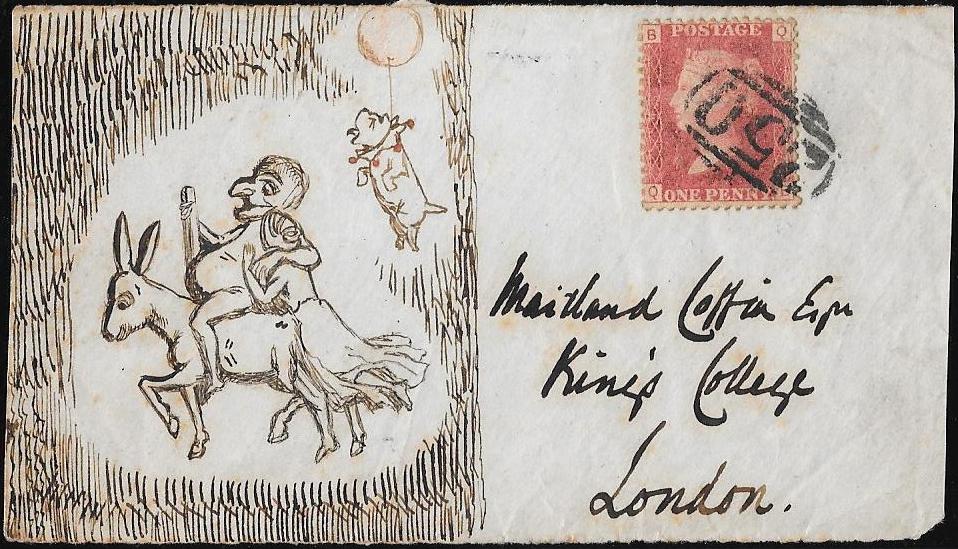 B POSTAGE Q
Q ONE PENNY
Maitland Coffin Esqr
King's College
London.